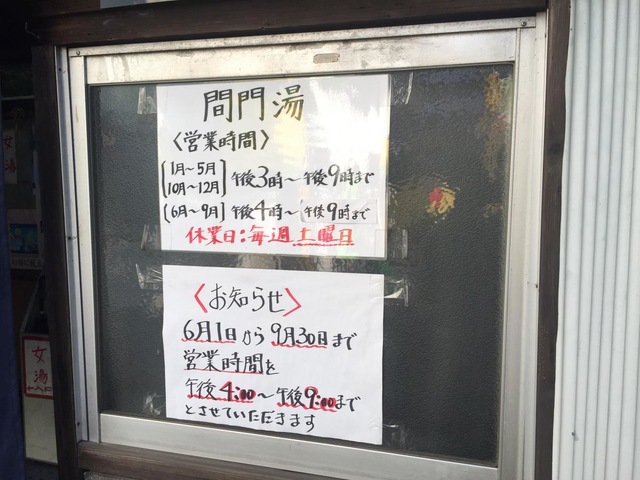 間門湯
〈営業時間〉
1月～5月
10月～12月
午後3時～午後9時まで
6月～9月 午後4時～午後9時まで
休業日：毎週土曜日
〈お知らせ〉
6月1日から9月30日まで
営業時間を
午後4:00～午後9:00まで
とさせていただきます
女湯
女湯
←入口